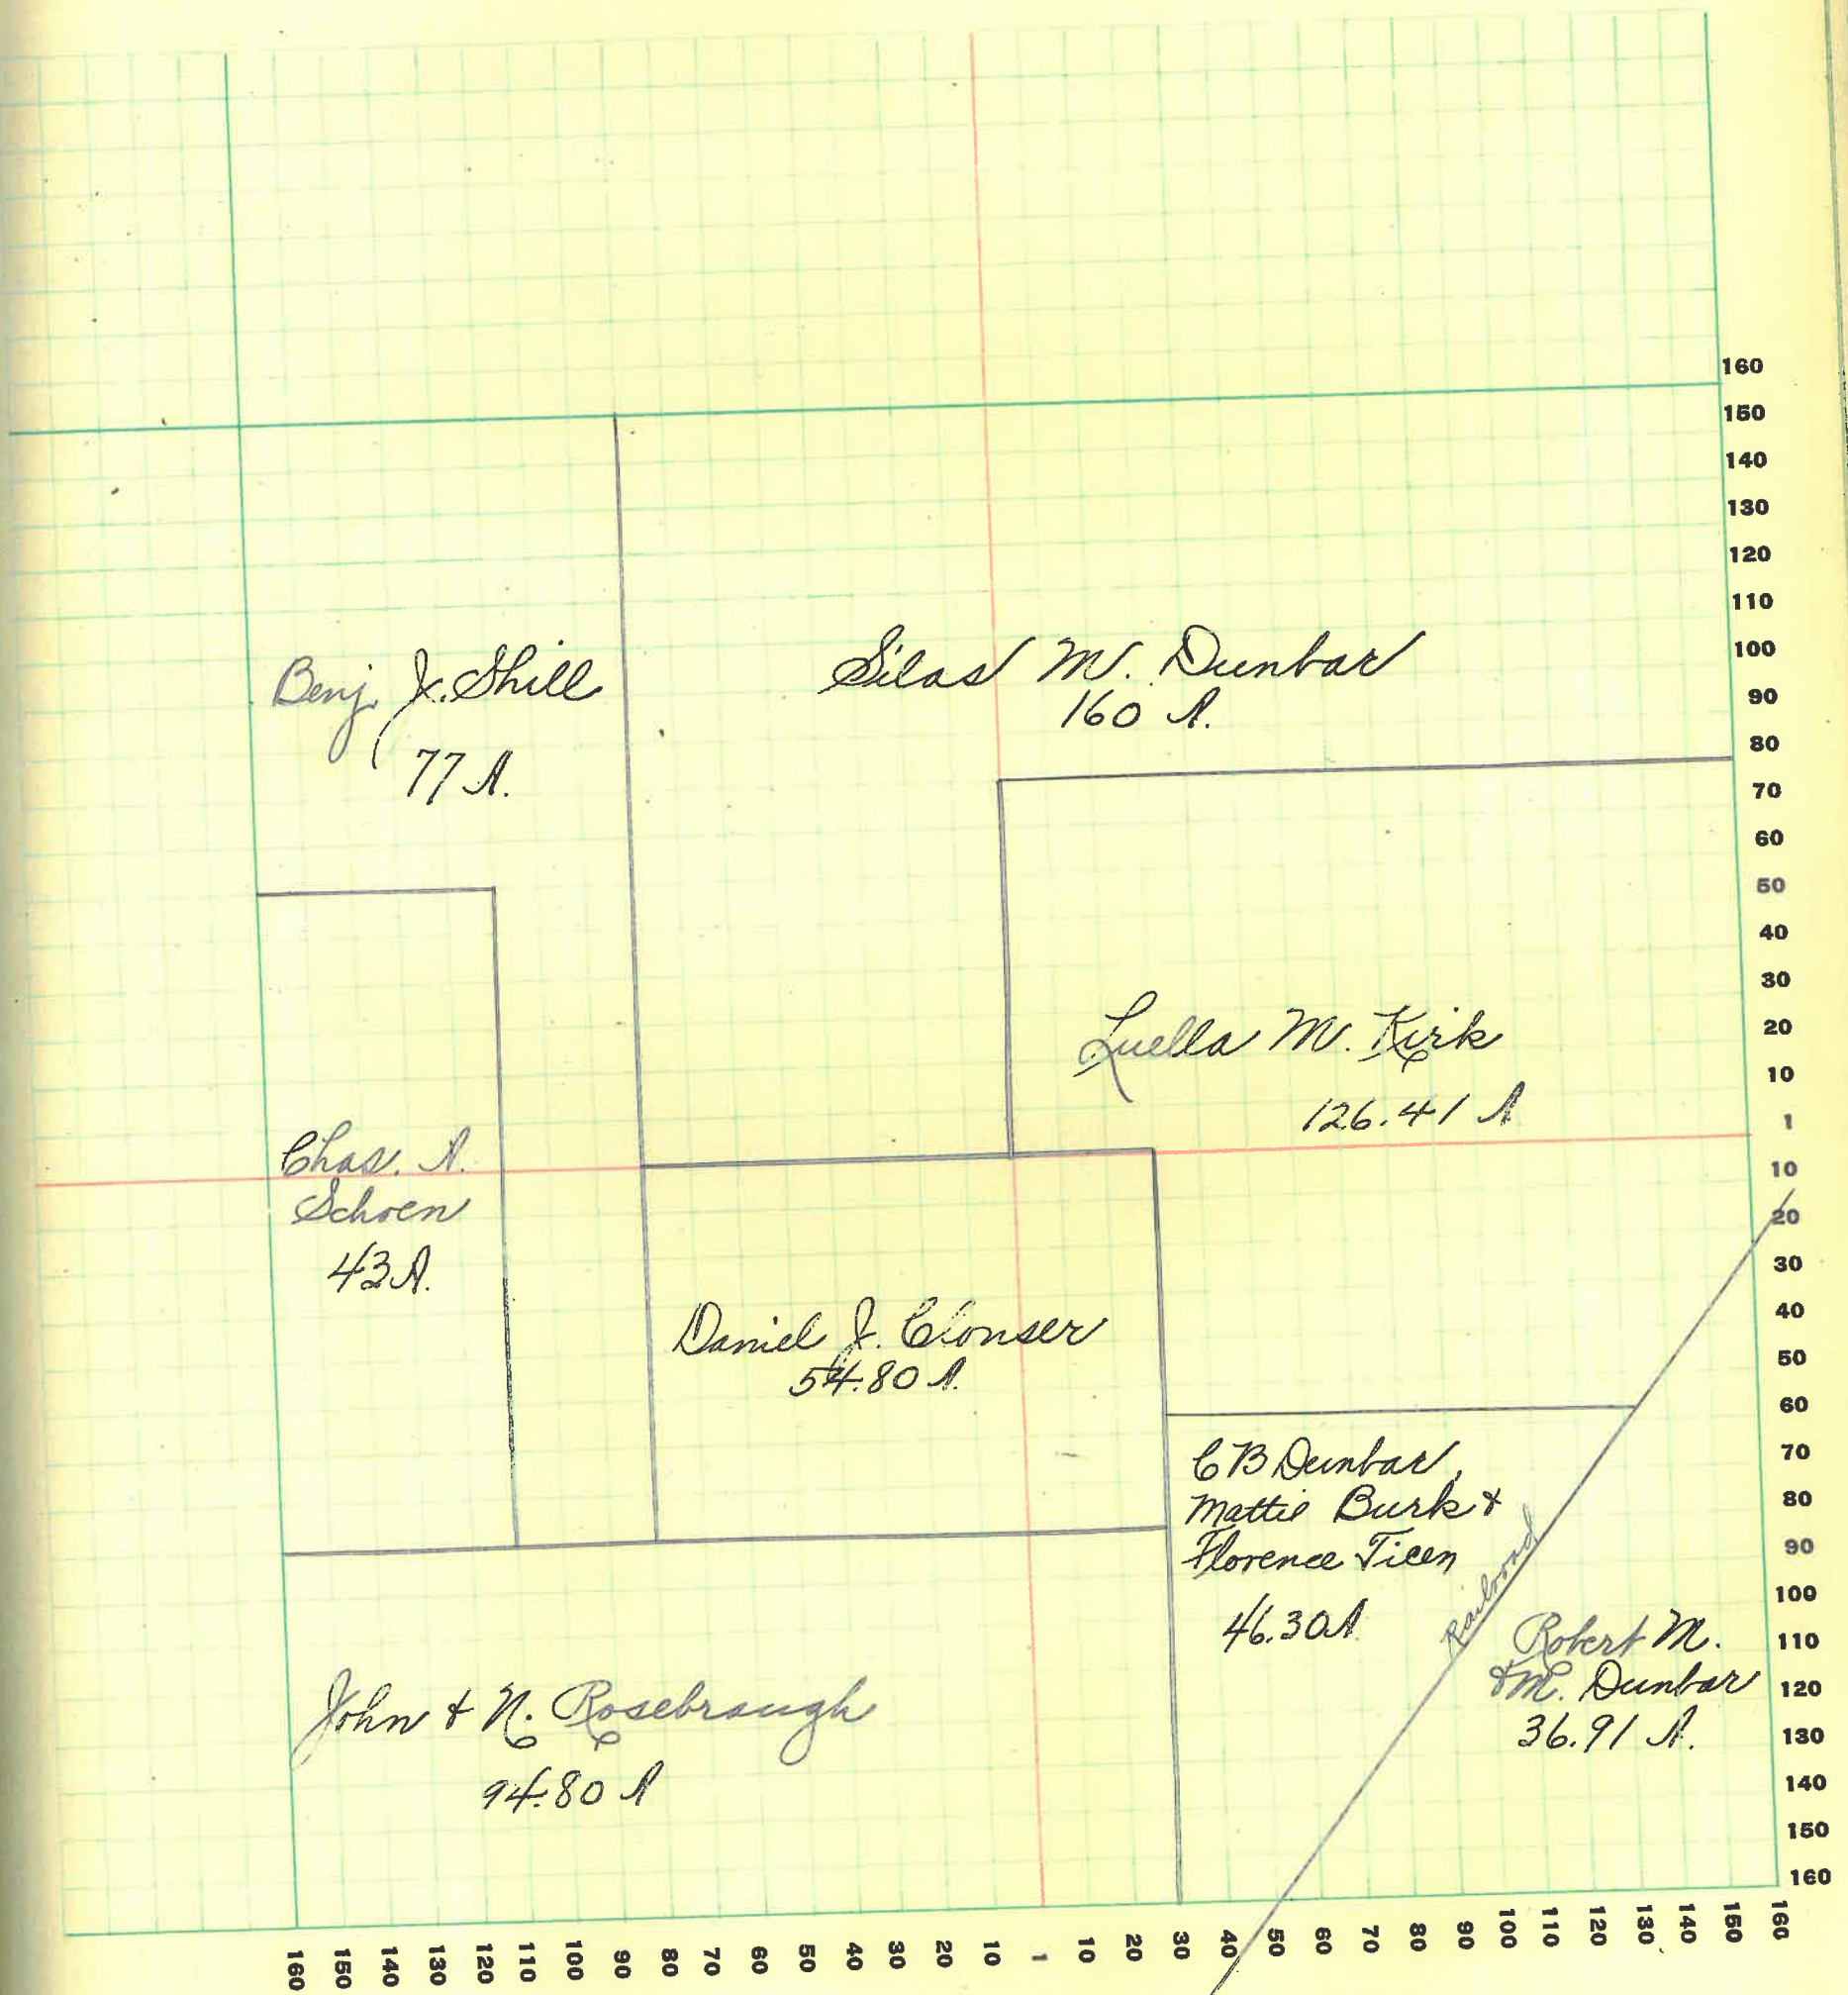 160
150
140
130
120
110
100
90
80
70
60
50
40
30
20
10
1
10
20
30
40
50
60
70
80
90
100
110
120
130
140
150
160
Benj. J. Shill
77 A.
Silas M. Dunbar
160 A.
Luella M. Kirk
126.41 A
Chas. A.
Schoen
43 A.
Daniel J. Clonser
54.80 A.
C B Dunbar,
Mattie Burk &
Florence Ticen
46.30 A
Railroad
Robert M.
& M. Dunbar
36.91 A.
John & N. Rosebraugh
94.80 A
160 150 140 130 120 110 100 90 80 70 60 50 40 30 20 10 1 10 20 30 40 50 60 70 80 90 100 110 120 130 140 150 160